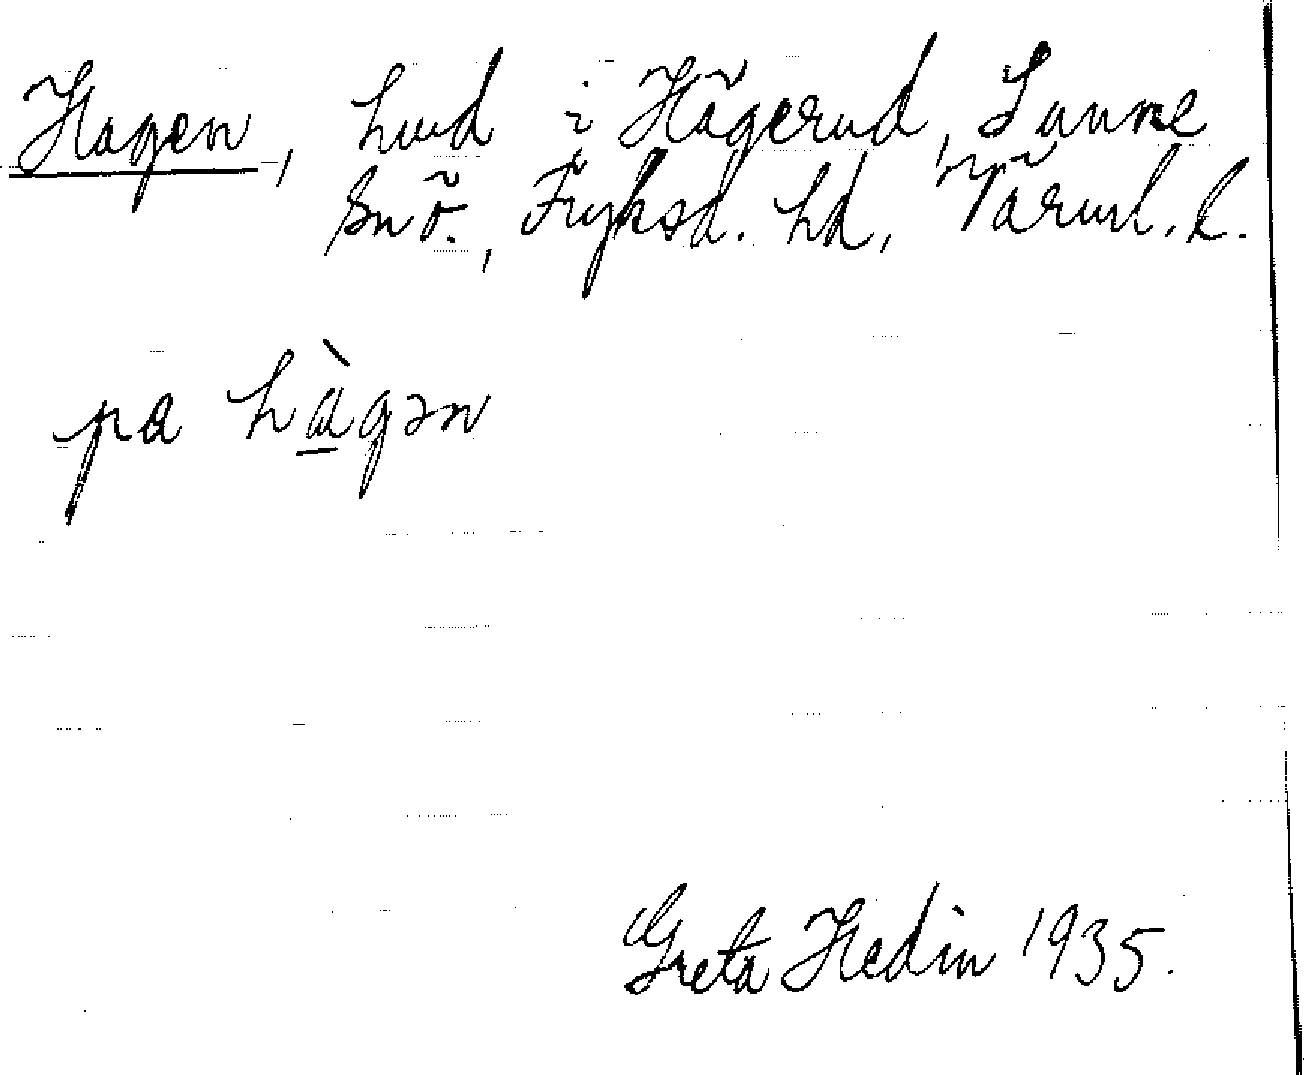 Hagen, hmd i Hägerud, Sunne
sn Ö., Fryksd. hd, Värml. l.
pa hàgən
Greta Hedin 1935.